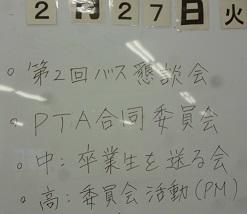 2月27日火
。第2回バス懇談会
。PTA合同委員会
。中：卒業生を送る会
。高：委員会活動(PM)